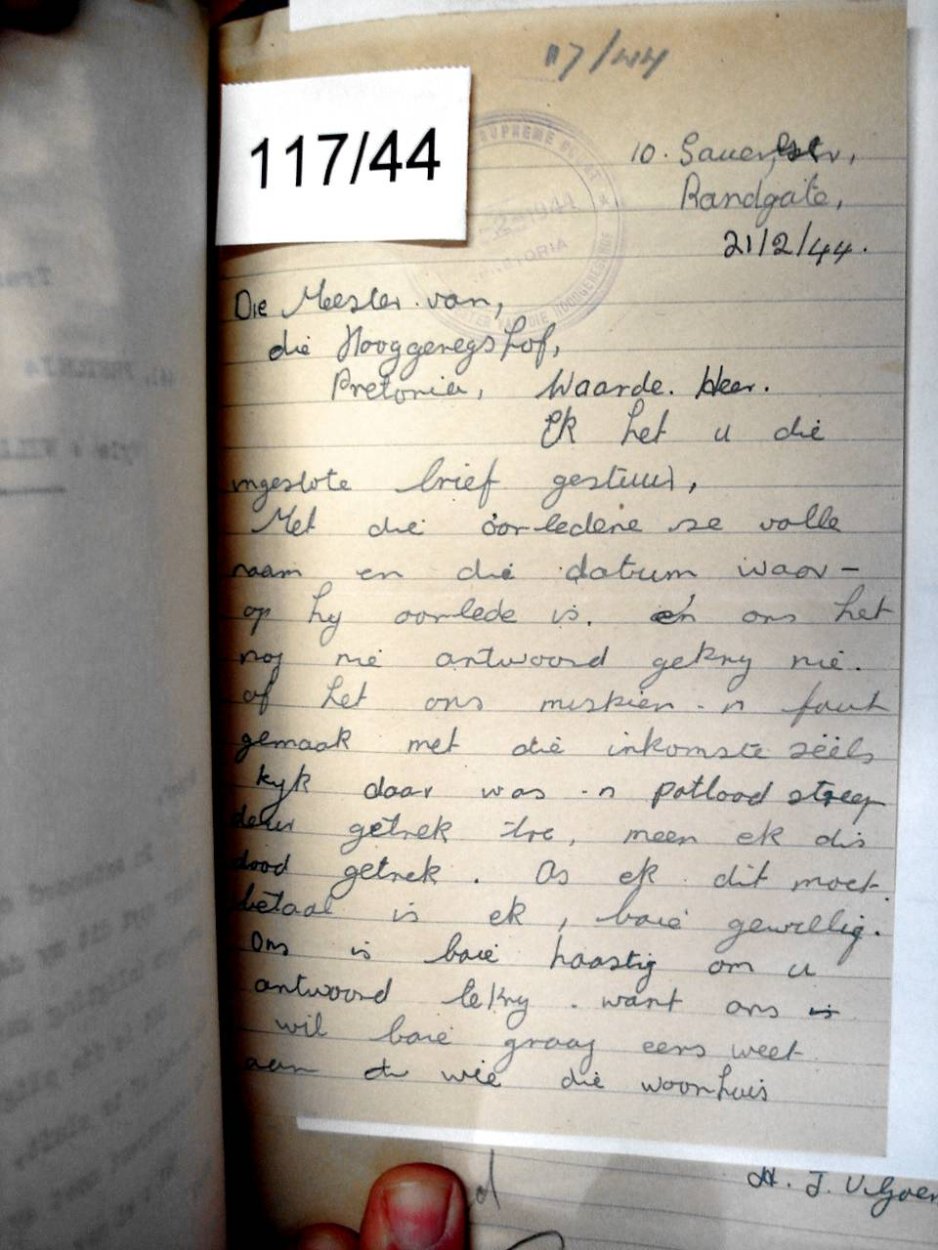 117/44
117/44
SUPREME
1944
PRETORIA
DIE HOOGGEREGSHOF
10. Sauer str,
Randgate,
21/2/44.
Die Meester van,
die Hooggeregshof,
Pretoria, Waarde. Heer.
Ek het u die
ingeslote brief gestuur,
Met die oorledene se volle
naam en die datum waar-
op hy oorlede is. en ons het
nog nie antwoord gekry nie.
of het ons miskien 'n fout
gemaak met die inkomste seëls
kyk daar was 'n potlood streep
deur getrek meen ek dis
dood getrek. As ek dit moet
betaal is ek, baie gewillig.
Ons is baie haastig om u
antwoord tekry. want ons is
wil baie graag eers weet
aan wie die woonhuis
d
H. J. V.